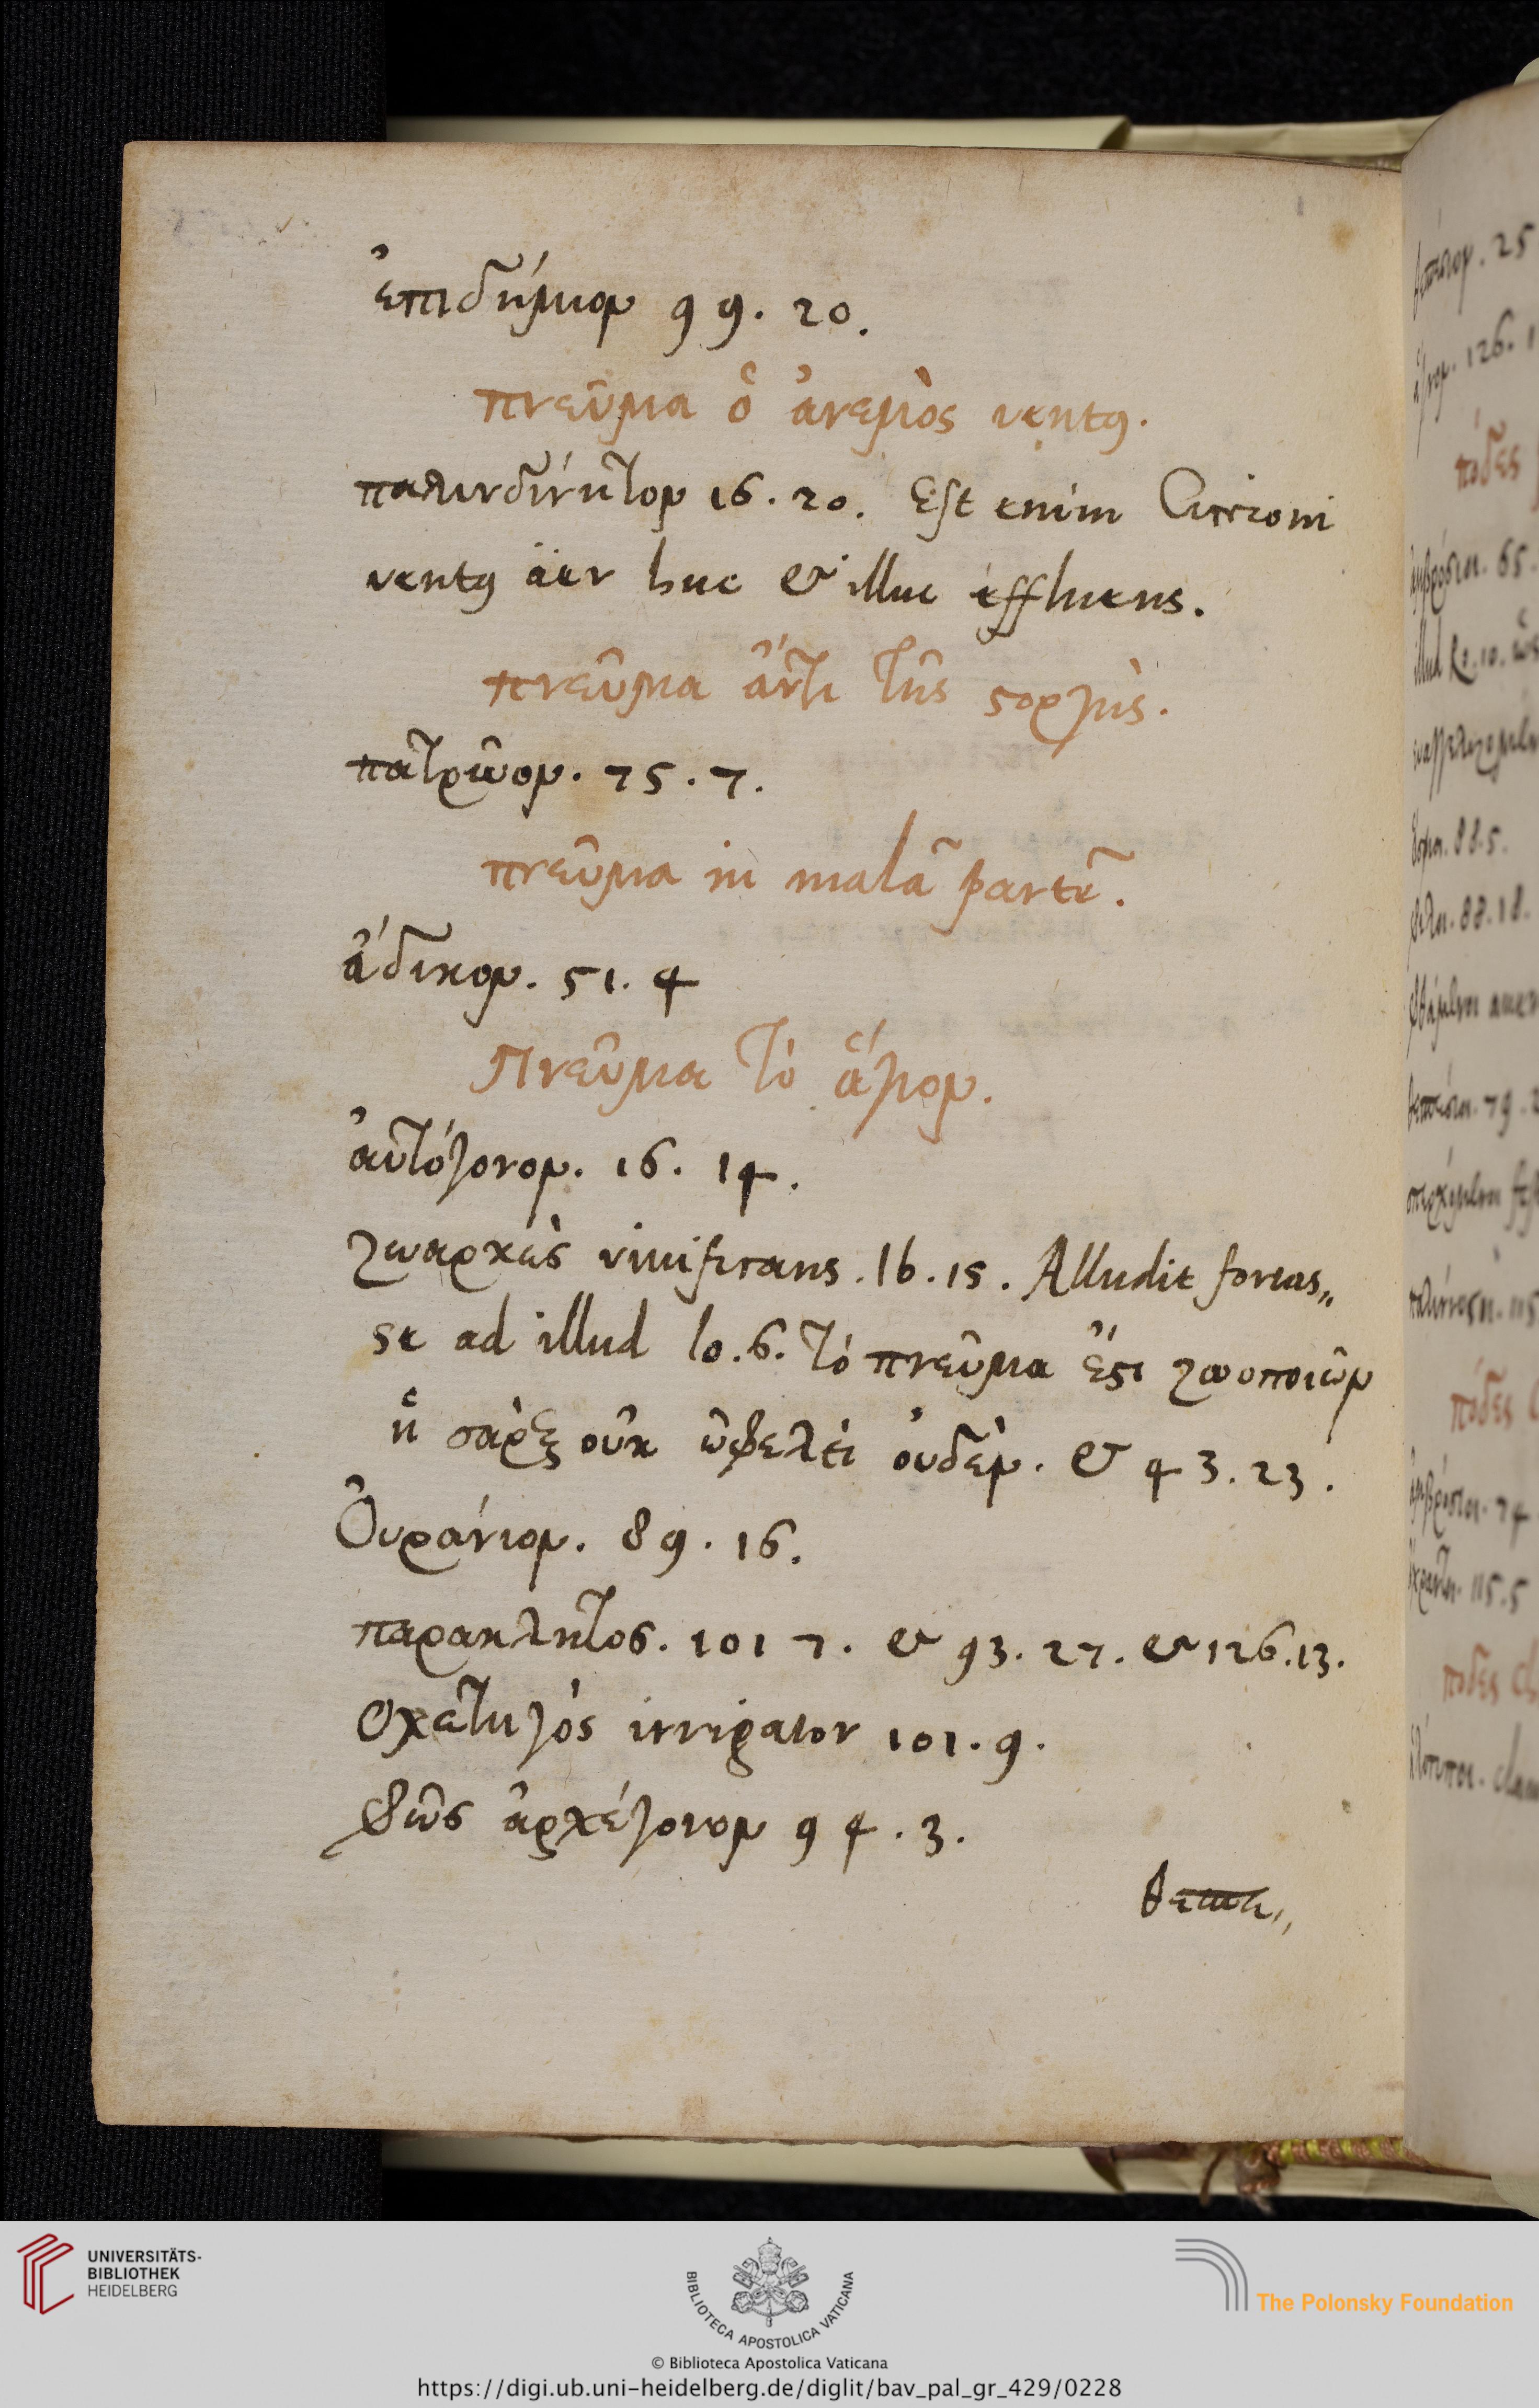 ἐπιδήμιον 99. 20.
πνεῦμα ὁ ἀνεμὸς ventꝰ.
παλινδίνητον 16. 20. Est enim Ciceroni
ventꝰ äer huc & illuc effluens.
πνεῦμα ἄντι τῆς ςοργὴς.
πατρῶον. 75. 7.
πνεῦμα in malã partẽ.
ἄδικον. 51. 4
Πνεῦμα τὸ ἅγιον.
ἀυτόγονον. 16. 14.
ζωαρκὴς vivificans. Ib. 15. Alludit fortas„
se ad illud Io. 6. τὸ πνεῦμα ἔςι ζωοποιῶν
ἡ σὰρξ οὐκ ὠφελεῖ ὀυδὲν. & 43. 23.
Ὀυράνιον. 89. 16.
παρακλητος. 101 7. & 93. 27. & 126. 13.
οχετηγὸς irrigator 101. 9.
φῶς ἀρχέγονον 94. 3.
θεσπε„
65.
88. 5.
88. 18.
UNIVERSITÄTS-
BIBLIOTHEK
HEIDELBERG
BIBLIOTECA APOSTOLICA VATICANA
The Polonsky Foundation
© Biblioteca Apostolica Vaticana
https://digi.ub.uni-heidelberg.de/diglit/bav_pal_gr_429/0228